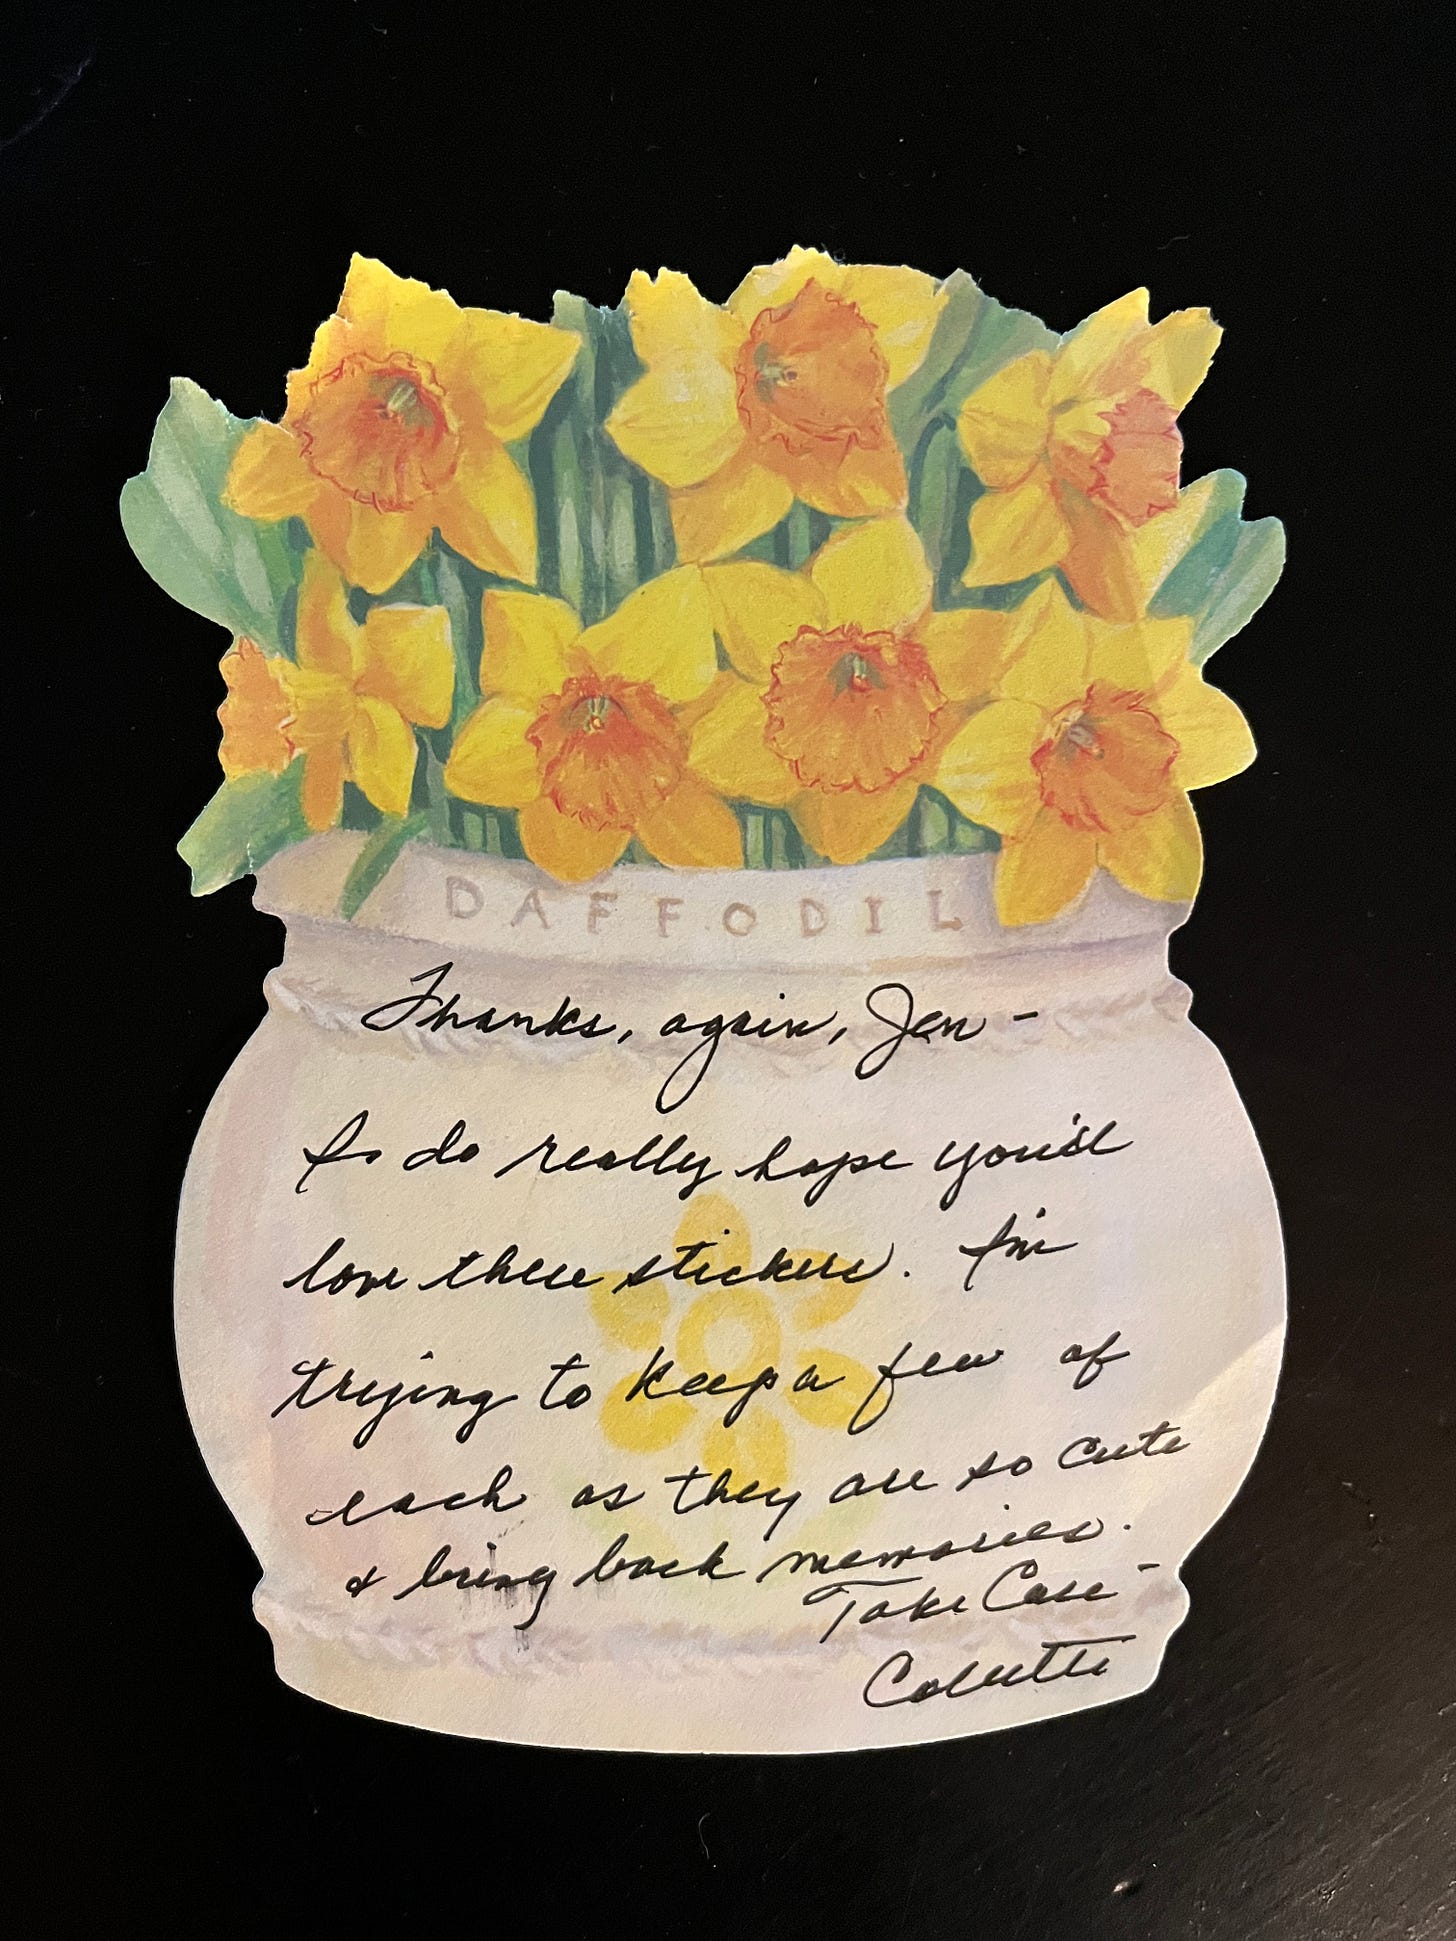 DAFFODIL
Thanks, again, Jen -
I do really hope you'll
love these stickers. I'm
trying to keep a few of
each as they are so cute
& bring back memories.
Take Care -
Colette